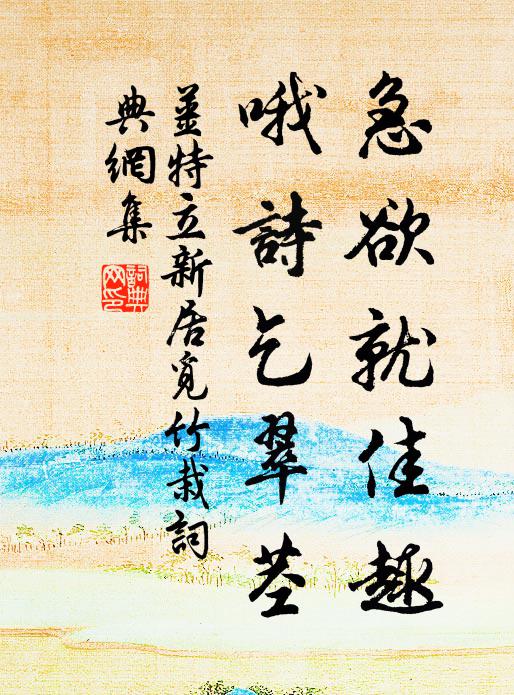 急欲就佳趣
哦詩乞翠茎
姜特立新居覓竹栽詞
典網集
詞典
网印